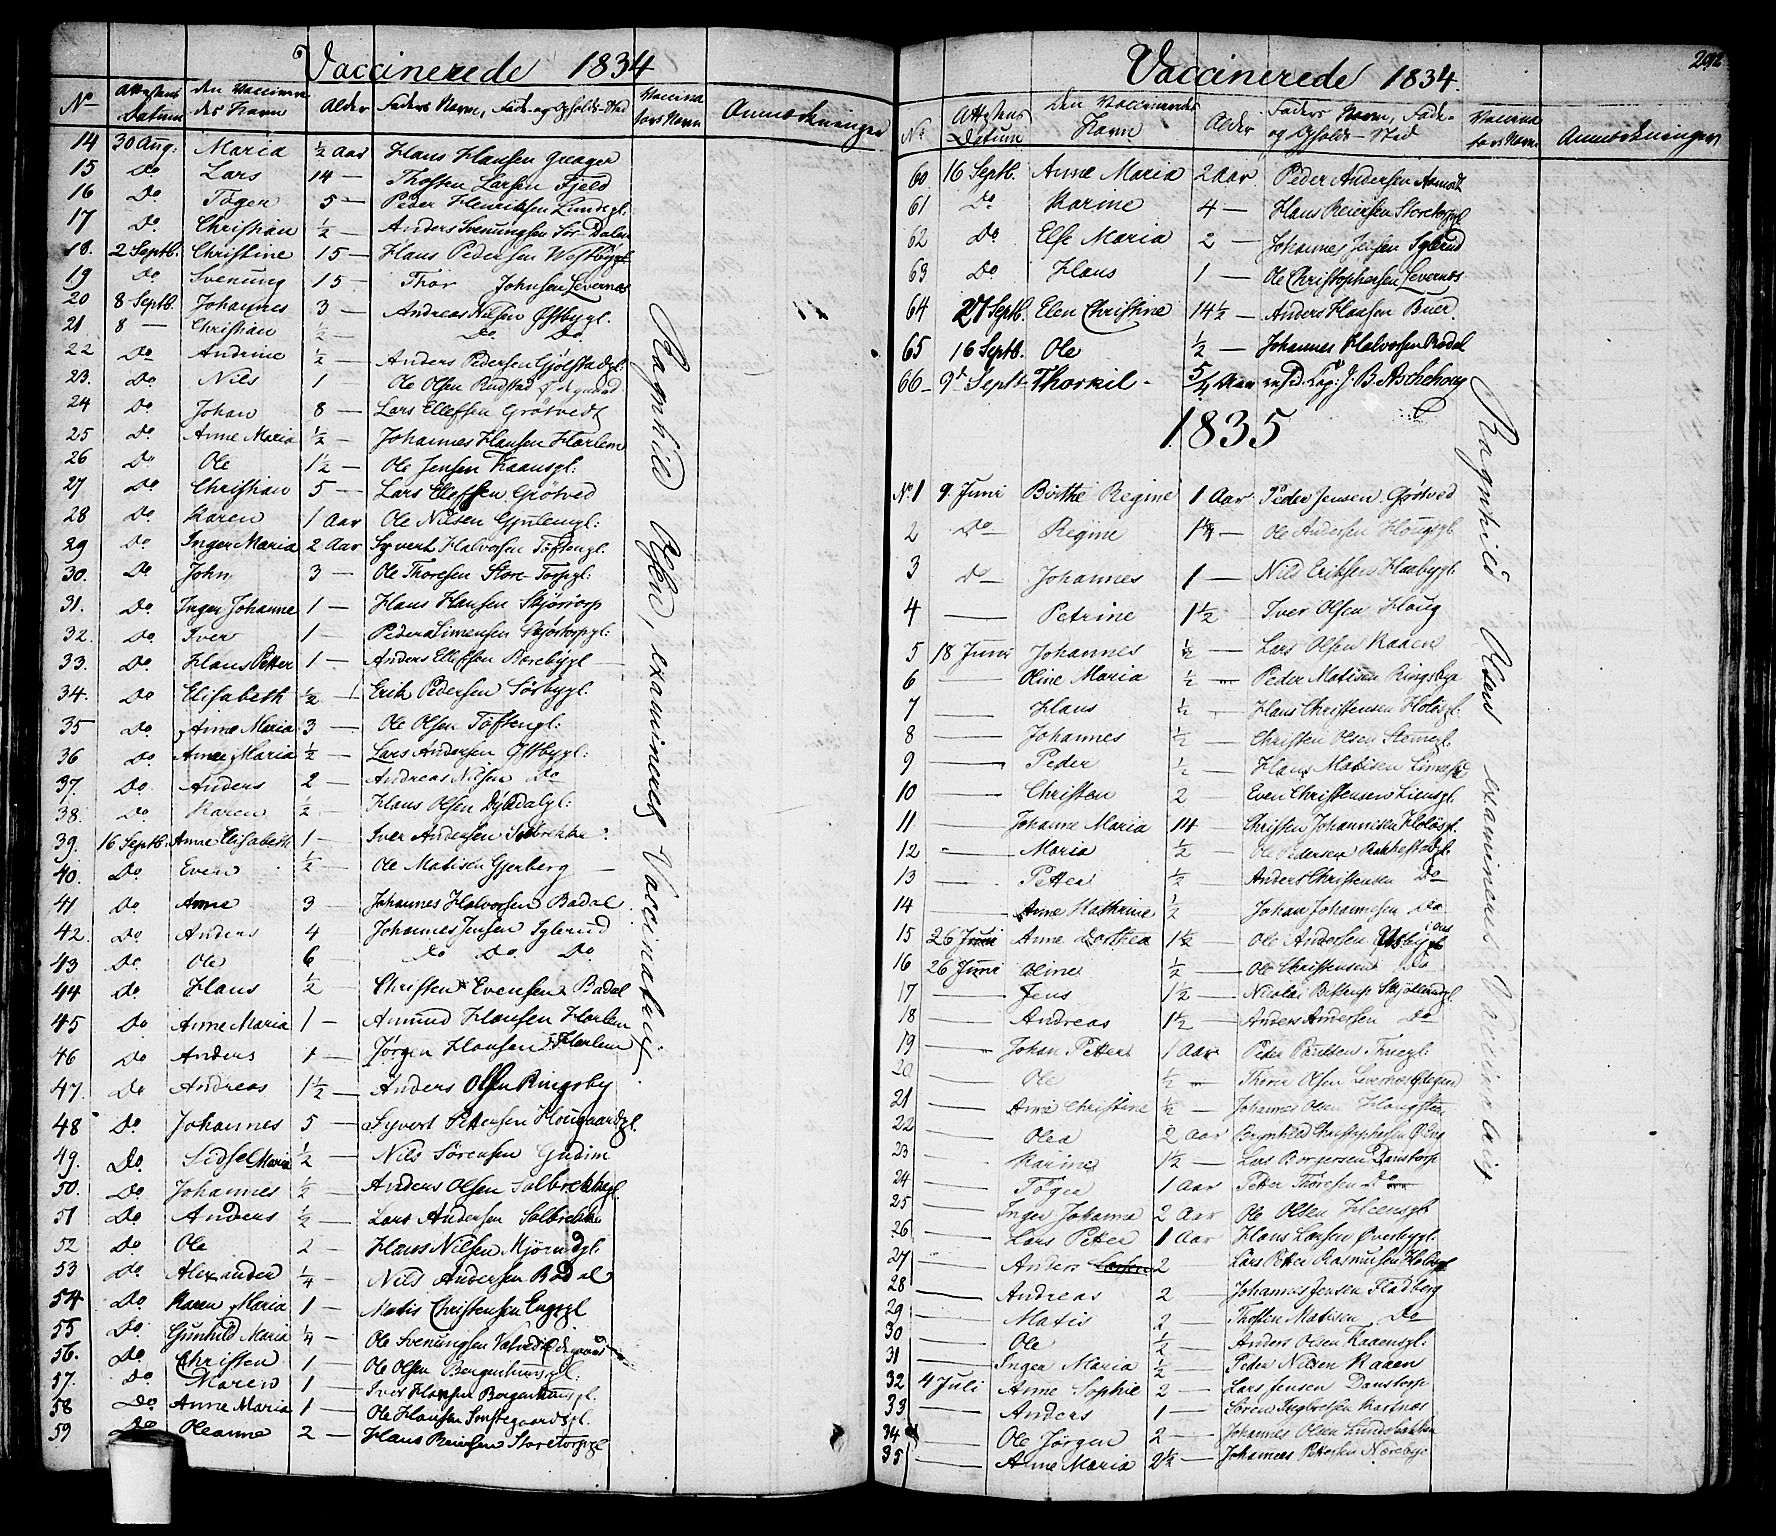 Vaccinerede 1834
No Attestens Datum den Vaccinere des Navn Alder Faders Navn, Føde- og Opholds-Sted Vaccina tors Navn Anmærkninger
14 30 Aug: Maria ½ Aar Hans Hansen
15 Do Lars 14 — Thosten Larsen Fjeld
16 Do Tøger 5 — Peder Henriksen Lundegl.
17 Do Christian ½ — Anders Svenungsen Sør-Dalen
18. 2 Septb. Christine 15 — Hans Pedersen Westbygl
19 Do Svenung 15 — Thor Johnsen Levernæs
20 8 Septb. Johannes 3 — Andreas Nilsen Østbygl.
21 8 — Christian ½ — Do Do
22 Do Andrine ½ — Anders Pedersen Gjølstadgl
23. Do Nils 1 Ole Olsen Rudstad
24 Do Johan 8 — Lars Ellefsen Grøtvedt
25 Do Anne Maria ½ — Johannes Hansen Harlem
26 Do Ole 1½ — Ole Jensen Kaansgl:
27 Do Christian 5 — Lars Ellefsen Grøtved
28 Do Karen 1 Aar Ole Nilsen
29 Do Inger Maria 2 Aar Syvert Halvorsen Toftengl.
30. Do John 3 — Ole Thoresen Store-Torpgl:
31. Do Inger Johanne 1 — Hans Hansen Skjøtorp
32. Do Iver 1 — Peder Simensen Skjøtorpgl:
33. Do Hans Petter 1 — Anders Ellefsen Borebygl —
34. Do Elisabeth ½ — Erik Pedersen Sørbygl.
35 Do Anne Maria 3 — Ole Olsen Toftengl:
36 Do Anne Maria ½ — Lars Andersen Østbygl:
37. Do Anders 2 — Andreas Nilsen Do
38. Do Karen ½ Hans Olsen
39. 16 Septb. Anne Elisabeth 1 — Iver Andersen Solbrekke
40. Do Even ½ — Ole Matisen Gjerberg —
41 Do Anne 3 — Johannes Halvorsen Badal
42. Do Anders 4 Johannes Jensen Iglerud
43 Do Ole 6 — Do Do Do
44 Do Hans ½ — Christen Evensen Badal
45 Do Anne Maria 1 — Amund Hansen Harlem
46 Do Anders 1 — Jørgen Hansen Harlem
47. Do Andreas 1½ — Anders Olsen Ringsby
48 Do Johannes 5 — Syvert Pettersen Hougaardgl.
49. Do Sidsel Maria ½ — Nils Sørensen Gudim
50. Do Johannes ½ — Anders Olsen Solbrekkegl.
51 Do Anders ½ — Lars Andersen Solbrekke
52 Do Ole 2 — Hans Nilsen Mjørudgl.
53 Do Alexander ¼ — Nils Andersen Badal
54 Do Karen Maria 1 — Matis Christensen Engsgl
55 Do Gunhild Maria ¼ — Ole Svenungsen
56. Do Christen 1 Ole Olsen Borgenhuusgl:
57. Do Maren 1 — Iver Hansen Borgenhuusgl.
58 Do Anne Maria 1 — Ole Hansen
59 Do Oleanne 2 — Hans Reiersen Storetorpgl
Ragnhild Olsen, examineret Vaccinatrix.
292
Vaccinerede 1834.
No Attestens Datum Den Vaccineredes Navn Alder Faders Navn, Føde- og Opholds-Sted Vaccina tors Navn Anmærkninger
60 16 Septb. Anne Maria 2 Aar Peder Andersen Aamodt
61 Do Karine 4 — Hans Reiersen Storetorpgl
62 Do Else Maria 2 — Johannes Jensen Iglerud
63 Do Hans 1 — Ole Christophersen Levernæs
64 27 Septb. Elen Christine 14½ — Anders Hansen Buer
65 16 Septb. Ole ½ — Johannes Halvorsen Badal
66 — 9de Septr. Thorkil — 5/4 Aar resid. Cap: J. B. Aschehoug
1835
No. 1 9. Juni Birthe Regine 1 Aar Peder Jensen Grøtved
2 Do Regine Ole Andersen Hougsgl
3 Do Johannes 1 — Nils Eriksen Haabygl.
4 — Petrine 1½ Iver Olsen Houg
5 18 Juni Johannes ½ — Lars Olsen Kaaen
6 — Oline Maria ½ — Peder Matisen Ringsbye
7 — Hans ½ — Hans Christensen Holøsgl.
8 — Johannes ½ — Christen Olsen Steneegl.
9 — Peder ½ — Hans Matisen
10 — Christen 2 Even Christensen Liensgl.
11 — Johanne Maria 14 — Christen Johannesen Holøsgl.
12 — Maria ½ — Ole Pedersen Bakkestadgl.
13 — Petter ½ — Anders Christensen Do
14 — Anne Kathrine ½ Johan Johannesen Do
15 26 Juni Anne Dorthea 1½ — Ole Andersen
16 26 Juni Oline ½ — Ole Christensen Do
17 — Jens 1½ — Nicolai Bektrup Skjøllendgl
18 — Andreas 1½ — Anders Andersen Do
19 — Johan Petter 1 Aar Peder Poulsen Thuegl:
20 — Ole ½ — Thorer Olsen Levernæs
21 — Anne Christine ½ — Johannes Olsen Hougsteen
22 — Olea 2 Aar Brynhild Christophersen
23 — Karine 1½ — Lars Borgersen Danstorp
24 — Tøger 1 Aar Petter Thoresen Do
25 — Inger Johanne 2 Aar Ole Olsen Heensgl
26 — Lars Peter 1 Aar Hans Larsen Øverbygl.
27 — Anders 2 — Lars Petter Rasmussen
28 — Andreas 2 — Johannes Jensen Fladberg
29 — Matis 2 — Thosten Matisen Do
30 — Ole ½ — Anders Olsen Kaaensgl.
31 — Inger Maria ½ — Peder Nilsen Kaaen
32 4 Juli Anne Sophie 2 — Lars Jensen Danstorp
33 — Anders 1 — Søren Ingbretsen Kastnæs
34 — Ole Jørgen 2 — Johannes Olsen Lundsbakken
35 — Anne Maria 2½ — Johannes Pettersen Nærebye
Ragnhild Olsen examineret Vaccinatrix